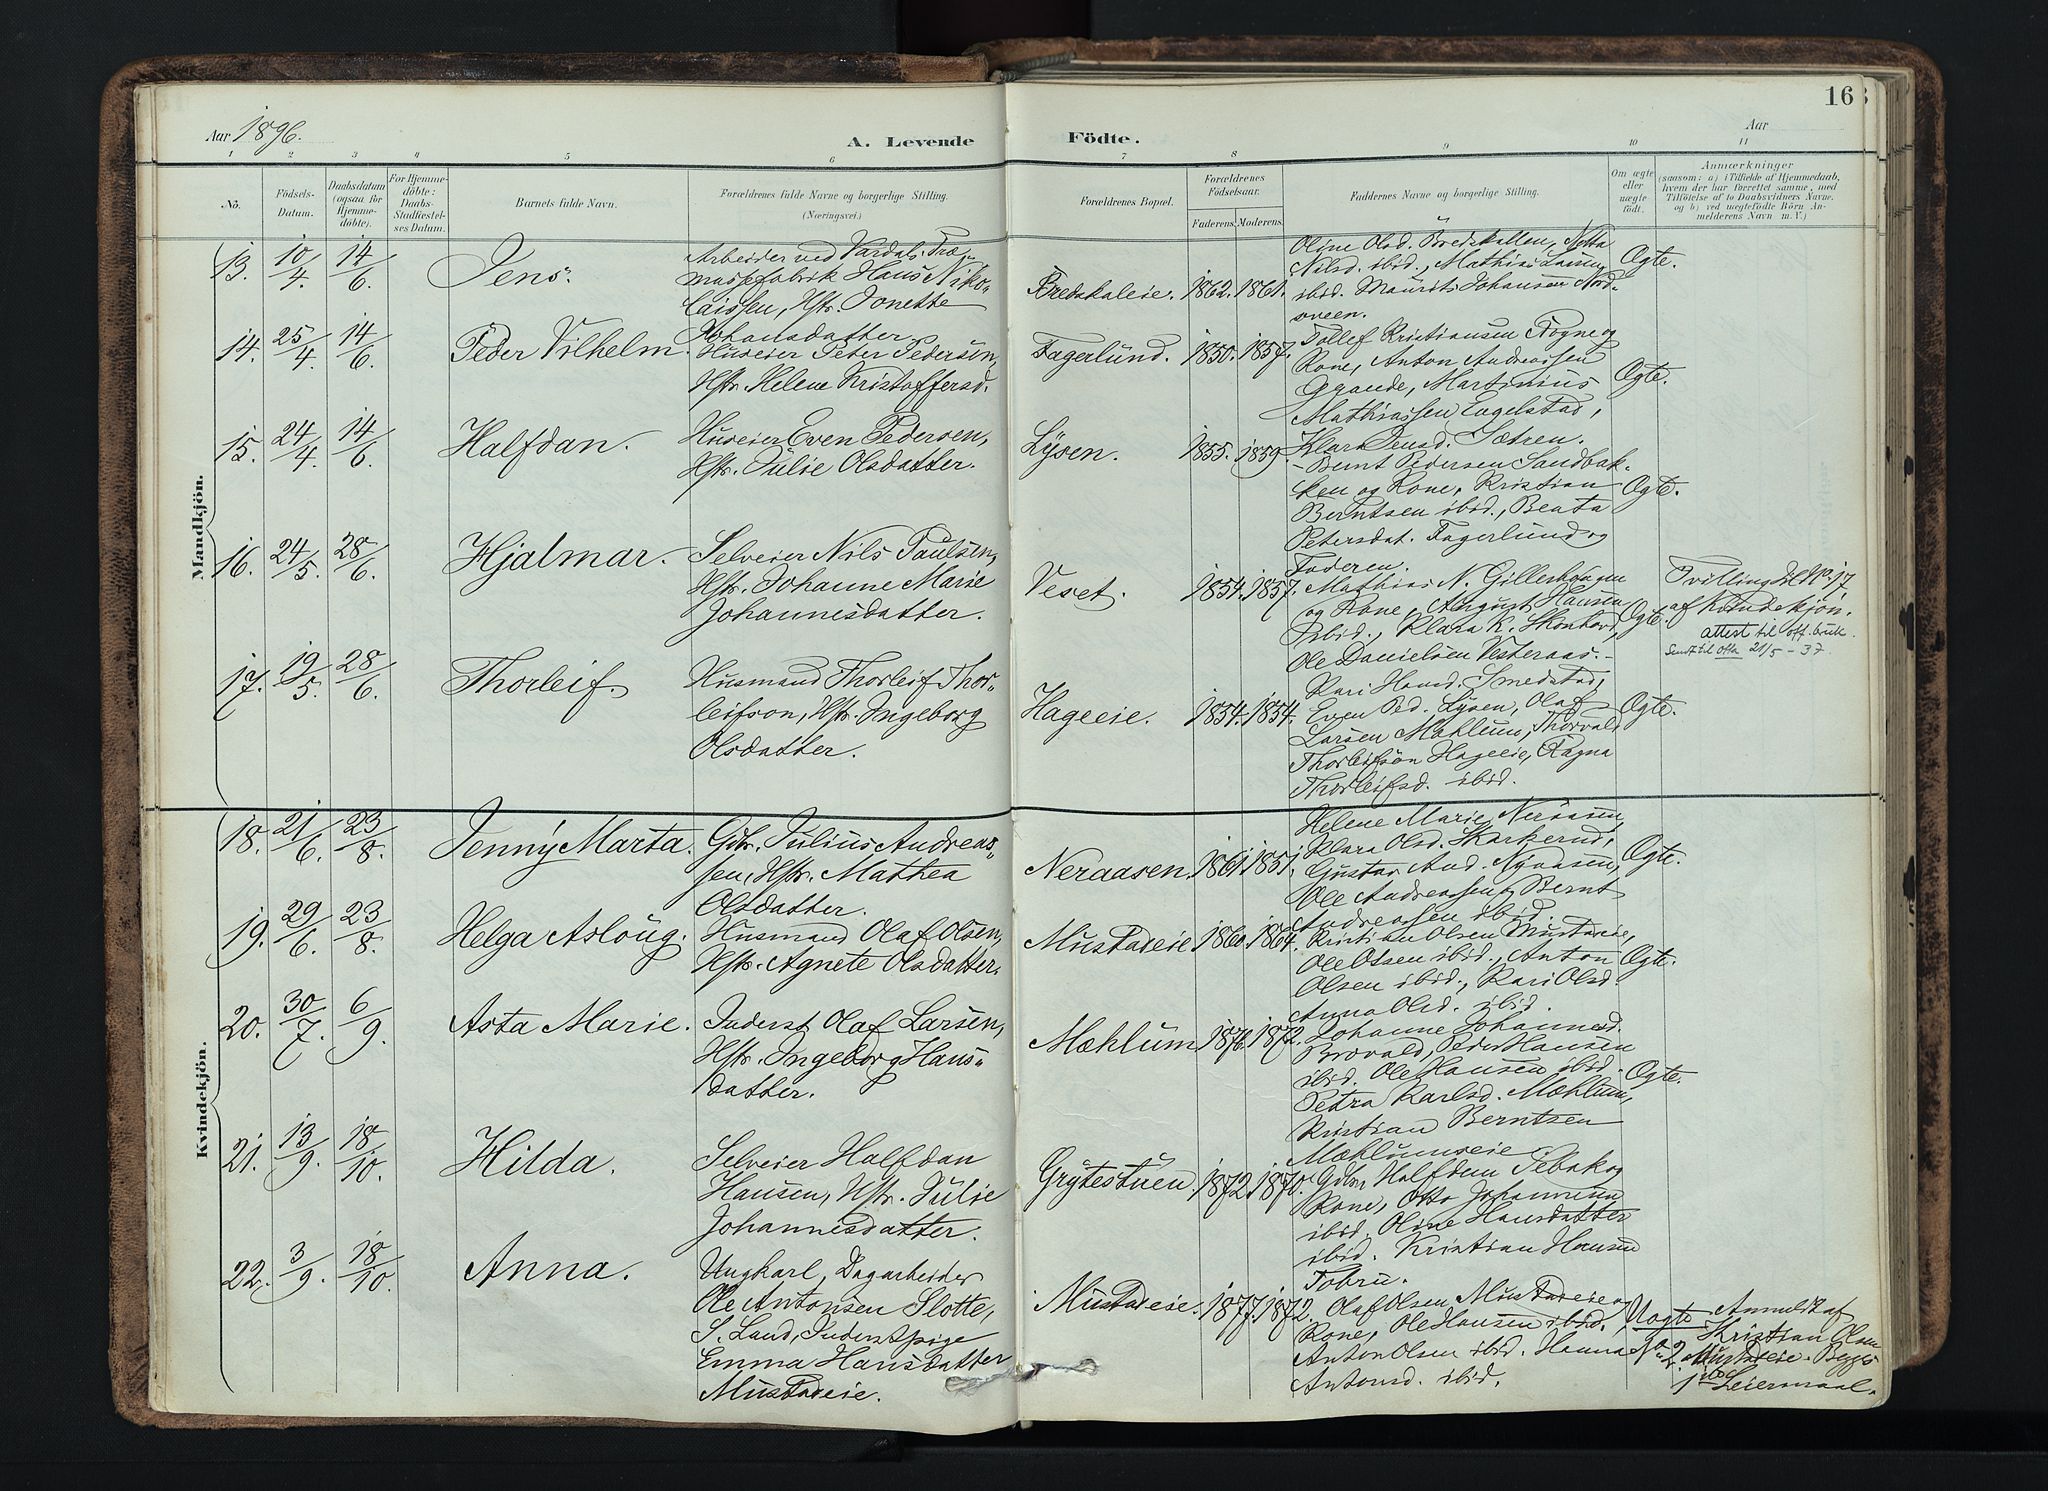 Aar 1896.
A. Levende
Födte.
Aar
16
1 2 3 4 5 6 7 8 9 10 11
Nö.
Födsels-
Datum.
Daabsdatum
(ogsaa for
Hjemme-
döbte).
For Hjemme-
döbte:
Daabs-
Stadfæstel-
ses Datum.
Barnets fulde Navn.
Forældrenes fulde Navne og borgerlige Stilling.
(Næringsvei.)
Forældrenes Bopæl.
Forældrenes
Födselsaar.
Faderens.
Moderens.
Faddernes Navne og borgerlige Stilling.
Om ægte
eller
uægte
födt.
Anmærkninger
(saasom: a) i Tilfælde af Hjemmedaab,
hvem der har forrettet samme, med
Tilföielse af to Daabsvidners Navne,
og b) ved uægtefödte Börn An-
melderens Navn m. V.)
Mandkjön.
13. 10/4. 14/6. Jens.
Arbeider ved Vardals Træ-
massefabrik Hans Niko-
laisen, Hstr. Jonette
Johansdatter
Bredskaleie. 1862. 1861.
Oline Olsd. Bredskallen, Netta
Nilsd. ibid., Mathias Larsen
ibid. Maurits Johansen Nord-
sveen.
Ægte.
14. 25/4. 14/6. Peder Vilhelm.
Huseier Peter Pedersen,
Hstr. Helene Kristoffersd.
Fagerlund. 1850. 1857.
Tollef Kristiansen Fogne og
Kone, Anton Andreassen
Martinius
Mathiassen Engelstad,
Klara Jensd. Sætren.
Ægte.
15. 24/4. 14/6. Halfdan.
Huseier Even Pedersen,
Hstr. Julie Olsdatter.
Lysen. 1855. 1859.
Bernt Pedersen Sandbak-
ken og Kone, Kristian
Berntsen ibid., Beata
Petersdat. Fagerlund og
Faderen.
Ægte.
16. 24/5. 28/6. Hjalmar.
Selveier Nils Paulsen,
Hstr. Johanne Marie
Johannesdatter.
Veset. 1854. 1857.
Mathias N. Gillerhaugen
og Kone, August Hansen
ibid., Klara K. Skonhovd,
Ole Danielsen Vesteraas.
Ægte.
Tvilling til No. 17
af Kvindekjön.
attest til off. bruk.
Sendt til Otta 21/5 - 37.
17. 19/5. 28/6. Thorleif.
Husmand Thorleif Thor-
leifson, Hstr. Ingeborg
Olsdatter.
Hageeie. 1854. 1854.
Kari Hansd. Smedstad,
Even Ped. Lysen, Olaf
Larsen Mæhlum, Thorvald
Thorleifsön Hageeie, Ragna
Thorleifsd. ibid.
Ægte.
Kvindekjön.
18. 21/6. 23/8. Jenny Marta.
Gbr. Julius Andreas-
sen, Hstr. Mathea
Olsdatter.
Neraasen. 1861. 1851.
Helene Marie Neraasen,
Klara Olsd. Skarkerud,
Gustav And. Nyaasen,
Ole Andreassen, Bernt
Andreassen ibid.
Ægte.
19. 29/6. 23/8. Helga Aslöug.
Husmand Olaf Olsen,
Hstr. Agnete Olsdatter.
Mustadeie 1860. 1864.
Kristian Olsen Mustadeie,
Ole Olsen ibid., Anton
Olsen ibid., Kari Olsd
Anna Olsd. ibid.
Ægte.
20. 30/7. 6/9. Asta Marie.
Inderst Olaf Larsen,
Hstr. Ingeborg Hans-
datter.
Mæhlum 1870. 1872.
Johanne Johannesd.
Brovald, Peder Hansen
ibid. Ole Hansen ibid.
Petra Karlsd. Mæhlum,
Kristian Berntsen
Mæhlumseie
Ægte.
21. 13/9. 18/10. Hilda.
Selveier Halfdan
Hansen, Hstr. Julie
Johannesdatter.
Grytestuen. 1872. 1870.
Gdbr. Halfdan og
Kone, Otto
ibid. Oline Hansdatter
ibid. Kristian Hansen
Tobru.
22. 3/9. 18/10. Anna.
Ungkarl, Dagarbeider
Ole Antonsen Slotte,
S. Land, Inderstpige
Emma Hansdatter
Mustadeie.
Mustadeie. 1877. 1872.
Olaf Olsen Mustadeie og
Kone, Ole Hansen ibid.,
Anton Olsen ibid. Hanna
Antonsd. ibid.
Uægte
No. 2
Anmeldt af
Kristian Olsen
Mustadeie. Begges
1ste Leiermaal.